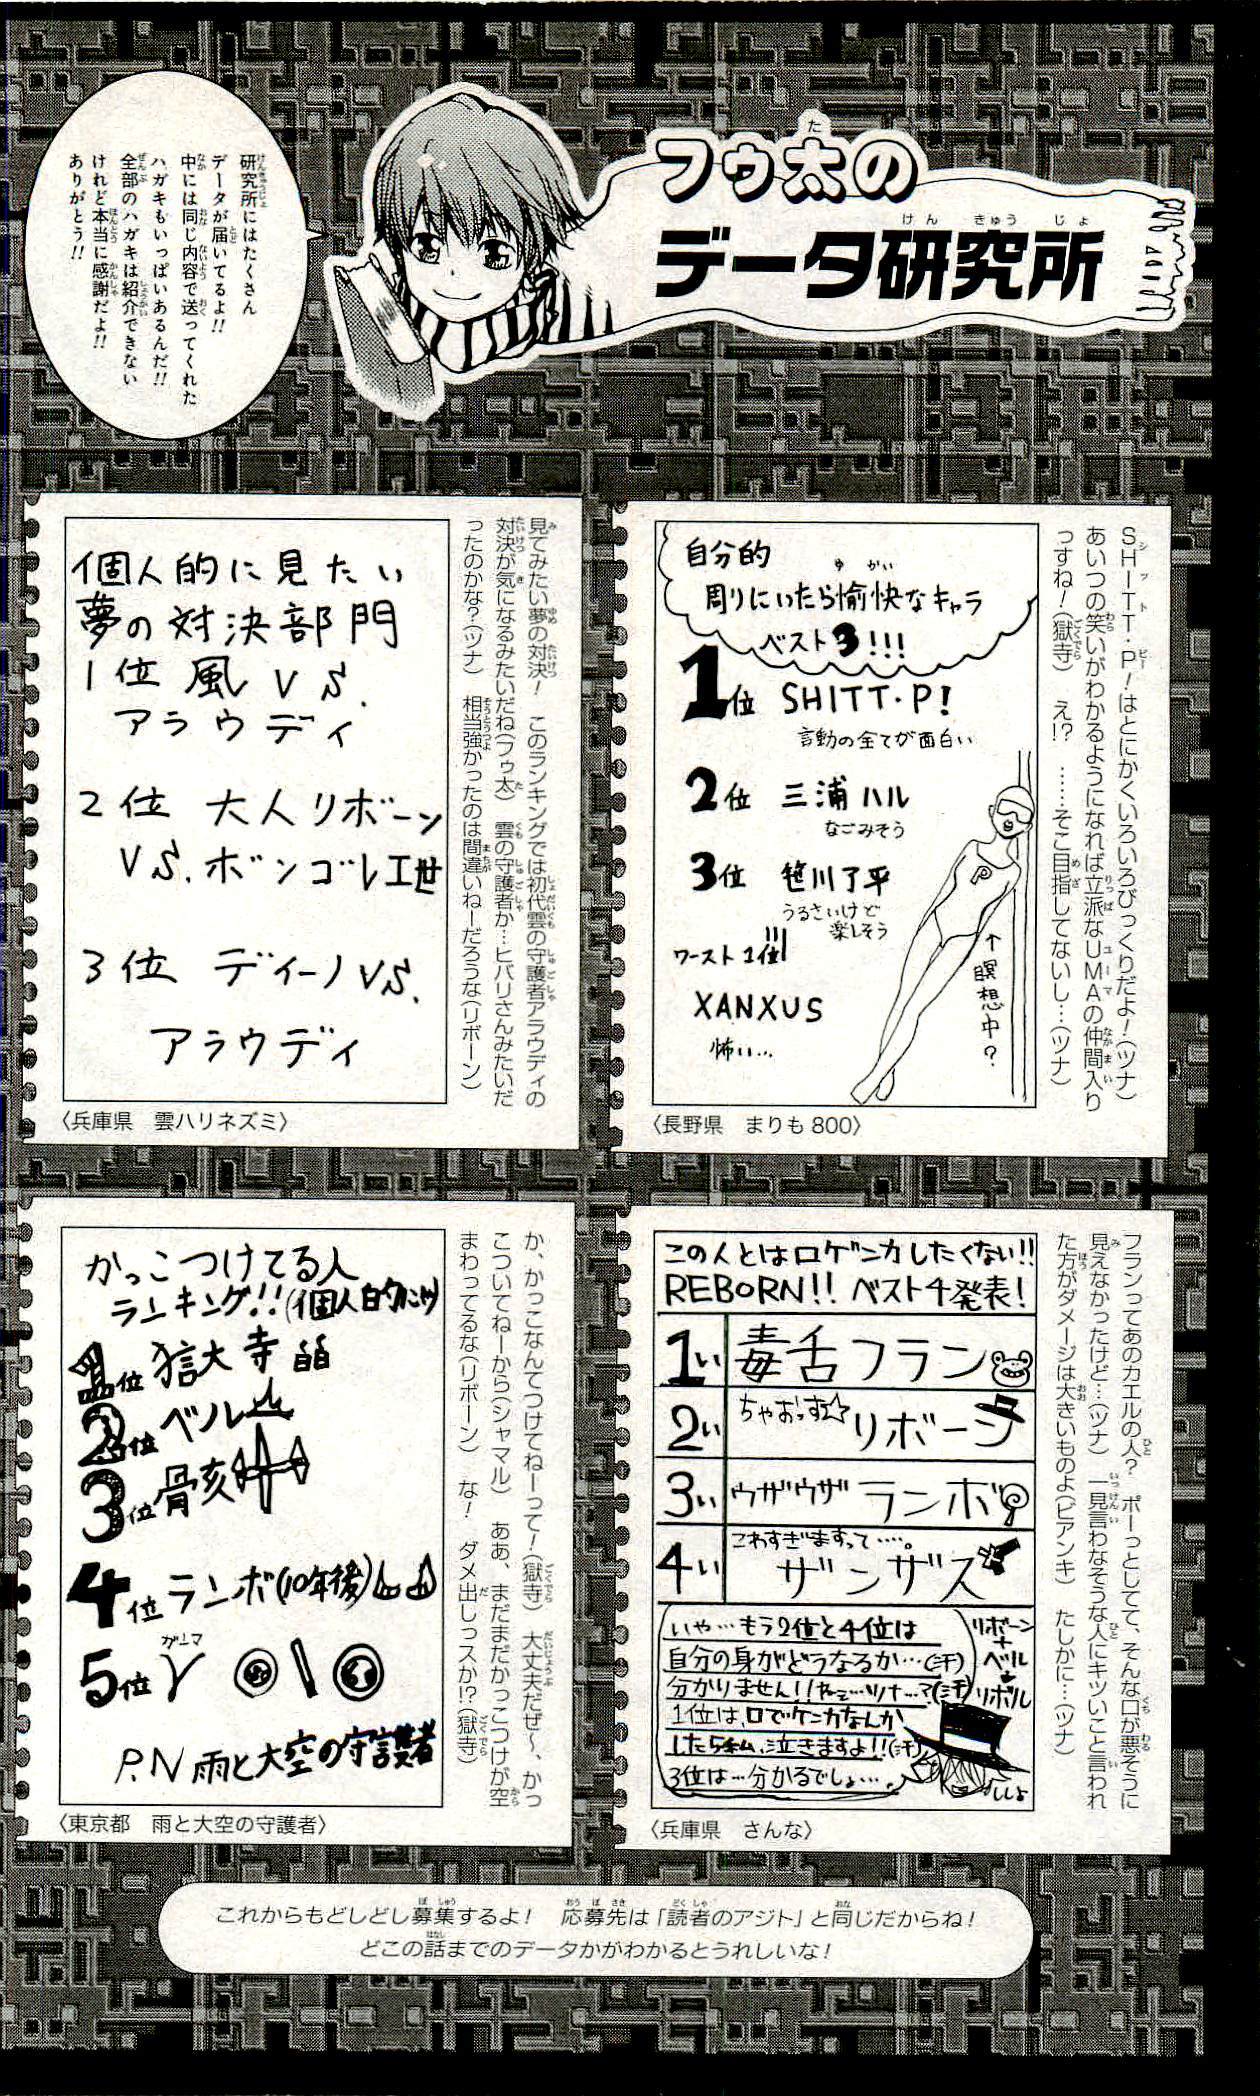 フゥ太の
データ研究所
研究所にはたくさん
データが届いてるよ!!
中には同じ内容で送ってくれた
ハガキもいっぱいあるんだ!!
全部のハガキは紹介できない
けれど本当に感謝だよ!!
ありがとう!!
SHITT・P!はとにかくいろいろびっくりだよ!(ツナ)
あいつの笑いがわかるようになれば立派なUMAの仲間入り
っすね!(獄寺) え!? ……そこ目指してないし…(ツナ)
自分的
周りにいたら愉快なキャラ
ベスト3!!!
1位 SHITT・P!
言動の全てが面白い
2位 三浦ハル
なごみそう
3位 笹川了平
うるさいけど
楽しそう
ワースト1位!!
XANXUS
怖い…
↑瞑想中?
〈長野県 まりも800〉
見てみたい夢の対決! このランキングでは初代雲の守護者アラウディの
対決が気になるみたいだね(フゥ太) 雲の守護者か…ヒバリさんみたいだ
ったのかな?(ツナ) 相当強かったのは間違いねーだろうな(リボーン)
個人的に見たい
夢の対決部門
1位 風 VS.
アラウディ
2位 大人リボーン
VS.ボンゴレI世
3位 ディーノVS.
アラウディ
〈兵庫県 雲ハリネズミ〉
フランってあのカエルの人? ボーっとしてて、そんな口が悪そうに
見えなかったけど…(ツナ) 一見言わなそうな人にキツいこと言われ
た方がダメージは大きいものよ(ビアンキ) たしかに…(ツナ)
この人とは口ゲンカしたくない!!
REBORN!! ベスト4発表!
1い 毒舌フラン
2い ちゃおっす☆ リボーン
3い ウザウザ ランボ
4い こわすぎますって……。
ザンザス
いや…もう2位と4位は
自分の身がどうなるか…(汗)
分かりません!!ねェ…ツナ…?(汗)
1位は、口でケンカなんか
した5私、泣きますよ!!(汗)
3位は…分かるでしょ…。
リボーン
+
ベル
↓
リボル
〈兵庫県 さんな〉
か、かっこなんてつけてねーって!(獄寺) 大丈夫だぜ〜、かっ
こついてねーから(シャマル) ああ、まだまだかっこつけが空
まわってるな(リボーン) な! ダメ出しっスか!?(獄寺)
かっこつけてる人
ランキング!!(個人的にや)
1位 獄寺
2位 ベル
3位 骸
4位 ランボ(10年後)
5位 γ
ガンマ
P.N 雨と大空の守護者
〈東京都 雨と大空の守護者〉
これからもどしどし募集するよ! 応募先は「読者のアジト」と同じだからね!
どこの話までのデータかがわかるとうれしいな!